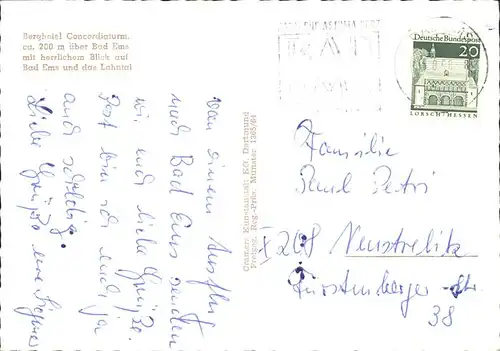 Berghotel Concordiaturm,
ca. 200 m über Bad Ems
mit herrlichem Blick auf
Bad Ems und das Lahntal
Von einem Ausflug
nach Bad Ems senden
wir euch liebe Grüße.
Post bin ich auch ja
auch
Liebe Grüße eure
Cramers Kunstanstalt KG, Dortmund
Deutsche Bundespost
20
LORSCH/HESSEN
Familie
Paul Petri
Neustrelitz
Fürstenberger Str.
38